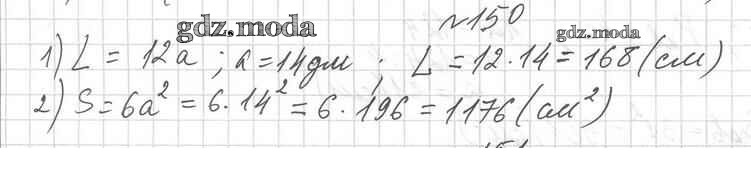 №150
gdz.moda
gdz.moda
1) L = 12a ; a = 14дм ; L = 12·14 = 168 (см)
2) S = 6a² = 6·14² = 6·196 = 1176 (см²)